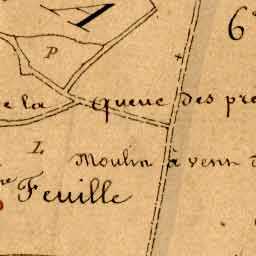 6
P
de la Queue des pre
L
Moulin à venn d
Feuille